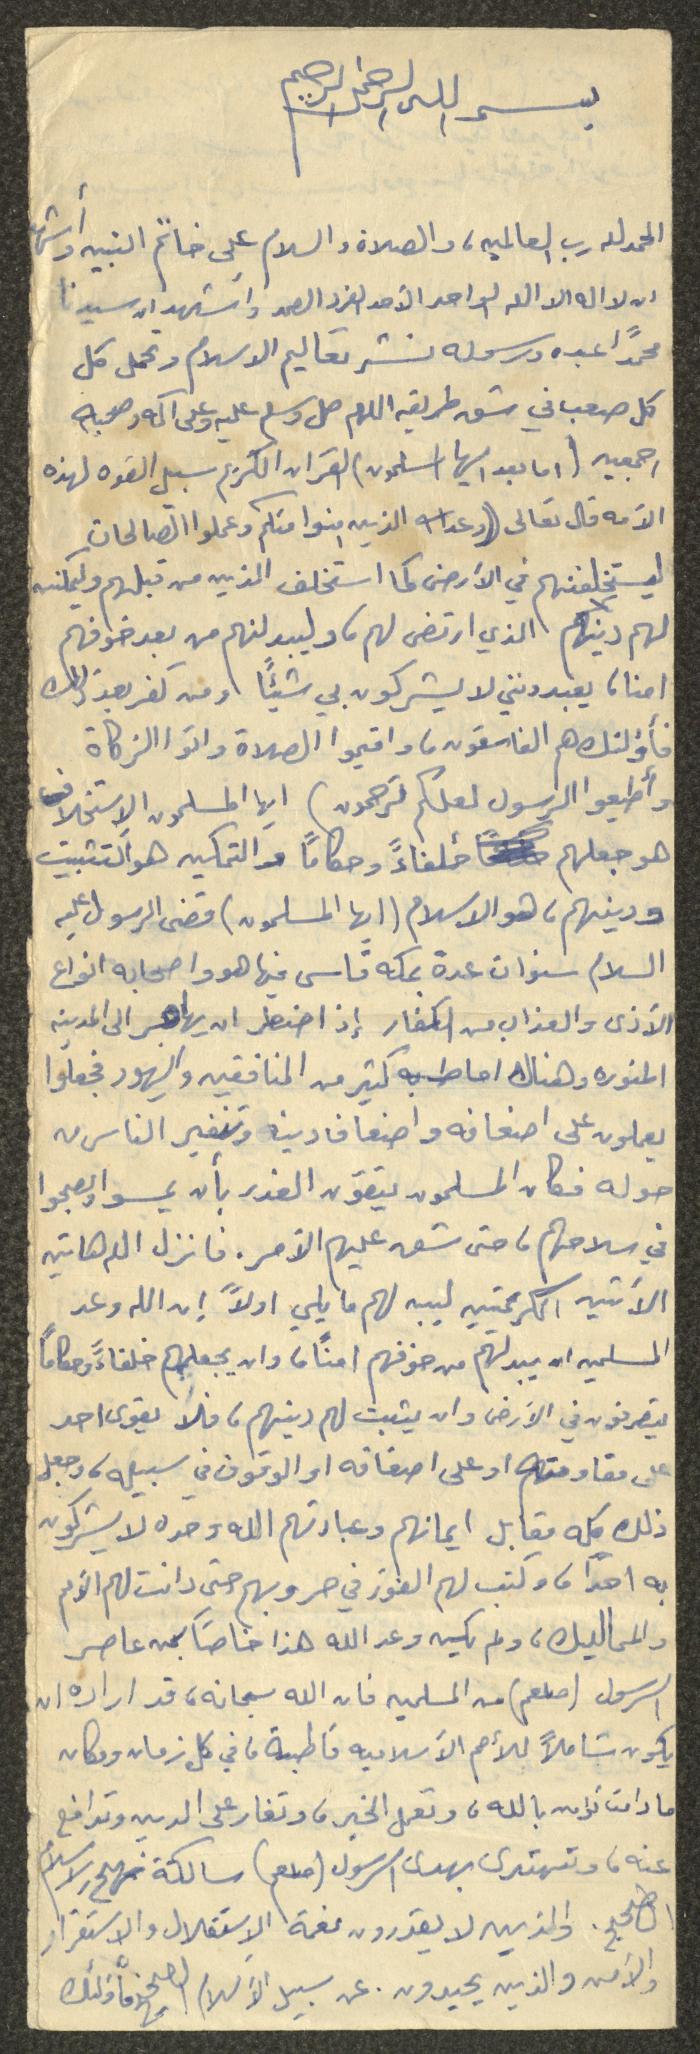 بسم الله الرحمن الرحيم
الحمد لله رب العالمين، والصلاة والسلام على خاتم النبيين أشهد
ان لا اله الا الله الواحد الأحد الفرد الصمد وأشهد ان سيدنا
محمدًا عبده ورسوله نشر تعاليم الاسلام وتحمل كل
كل صعب في شق طريقه اللهم صل وسلم عليه وعلى آله وصحبه
اجمعين (اما بعد ايها المسلمون) القران الكريم سبيل القوه لهذه
الأمه قال تعالى ((وعد الله الذين امنوا منكم وعملوا الصالحات
ليستخلفنهم في الأرض كما استخلف الذين من قبلهم وليمكنن
لهم دينهم الذي ارتضى لهم، وليبدلنهم من بعد خوفهم
امنا، يعبدونني لا يشركون بي شيئًا ومن كفر بعد ذلك
فأولئك هم الفاسقون، واقيموا الصلاة واتوا الزكاة
وأطيعوا الرسول لعلكم ترحمون) ايها المسلمون الاستخلاف
هو جعلهم خلفاءً وحكامًا والتمكين هو التثبيت
ودينهم، هو الاسلام (ايها المسلمون) قضى الرسول عليه
السلام سنوات عدة بمكه قاسى فيها هو واصحابه انواع
الأذى والعذاب من الكفار إذ اضطر ان يهاجر الى المدينه
المنوره وهناك احاط به كثير من المنافقين واليهود فجعلوا
يعملون على اضعافه واضعاف دينه وتنفير الناس من
حوله فكان المسلمون يتقون الغدر بأن يمسوا ويصبحوا
في سلاحهم، حتى شق عليهم الأمر. فانزل الله هاتين
الأيتين الكريمتين ليبين لهم ما يلي اولاً إن الله وعد
المسلمين ان يبدلهم من خوفهم امنًا، وان يجعلهم خلفاءً وحكامًا
يتصرفون في الأرض وان يثبت لهم دينهم، فلا يقوى احد
على مقاومته او على اضعافه او الوقوف في سبيله، وجعل
ذلك كله مقابل ايمانهم وعبادتهم الله وحده لا يشركون
به احدًا، وكتب لهم الفوز في حروبهم حتى دانت لهم الأمم
والممالك، ولم يكن وعد الله هذا خاصًا بمن عاصر
الرسول (صلعم) من المسلمين فان الله سبحانه، قد اراده ان
يكون شاملاً للأمم الأسلاميه قاطبة، في كل زمان ومكان
ما دامت تؤمن بالله، وتعمل الخير، وتغار على الدين وتدافع
عنه، وتهتدي بهدى الرسول (صلعم) سالكة نهج الاسلام
الصحيح. والذين لا يقدرون نعمة الاستقلال والاستقرار
والأمن والذين يحيدون. عن سبيل الأسلام الصحيح فأولئك